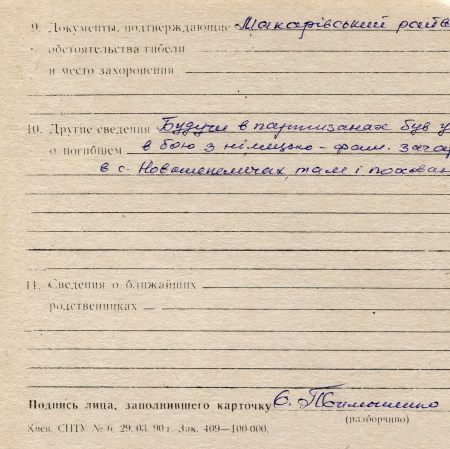 9. Документы, подтверждающие Макарівський
обстоятельства гибели
и место захоронения
10. Другие сведения Будучи в партизанах був у
о погибшем в бою з німецько-фаш.
в с. Новошепеличах, там і похован
11. Сведения о ближайших
родственниках
Подпись лица, заполнившего карточку
(разборчиво)
Киев. СНТУ. № 6. 29. 03. 90 г. Зак. 409—100 000.